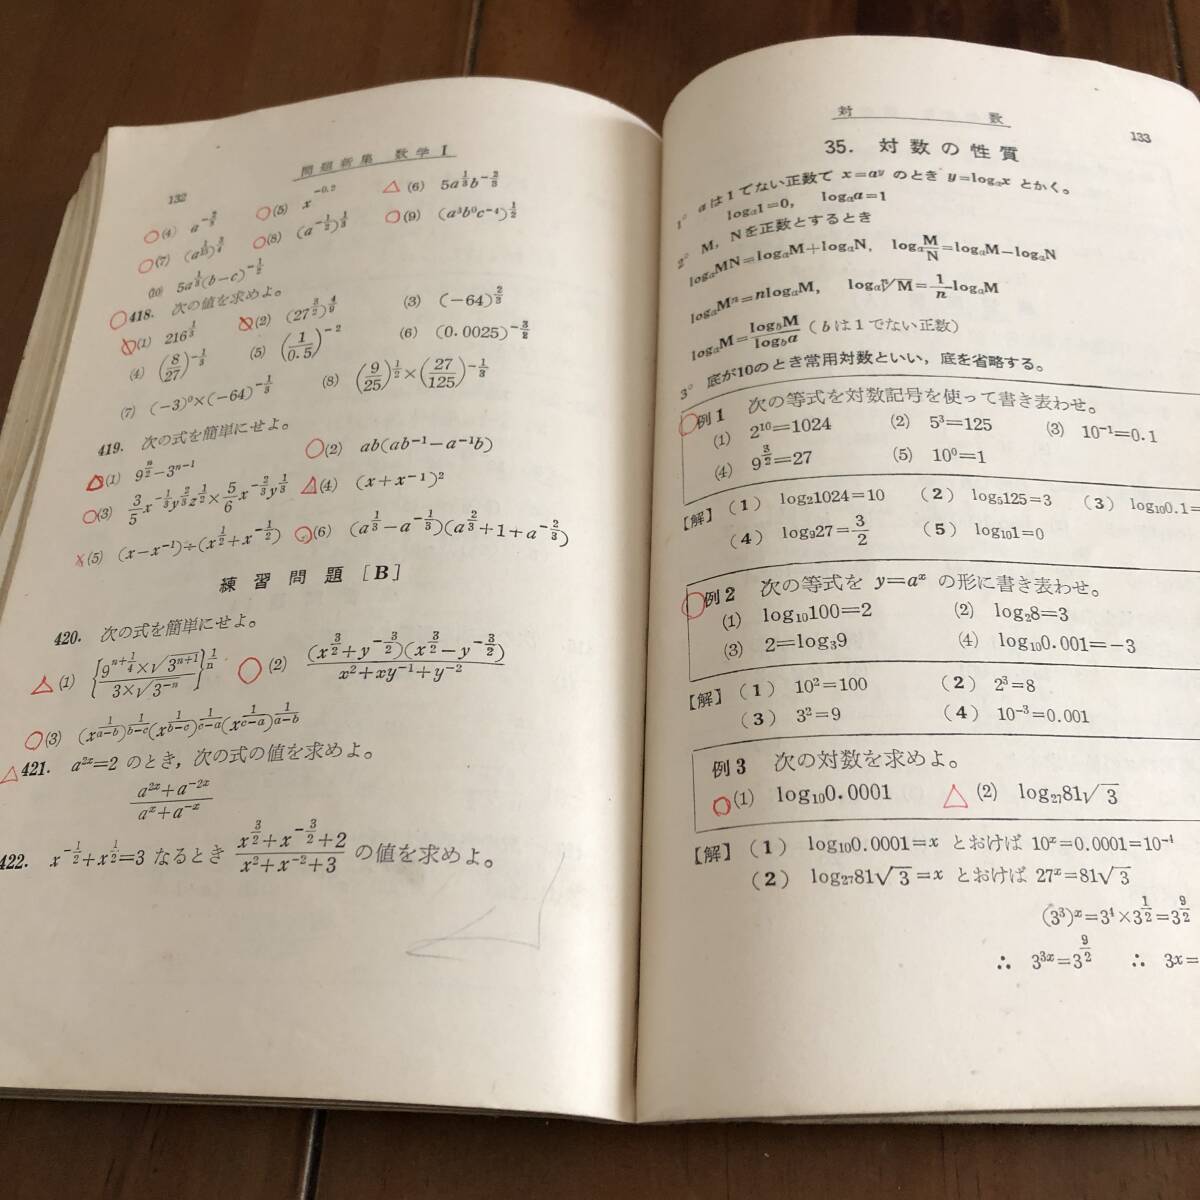 132
問題新集 数学 I
(4) a^{-2/3} (5) x^{-0.2} (6) 5a^{1/3}b^{-2/3}
(7) (a^{1/3})^{3/4} (8) (a^{-1/2})^{1/3} (9) (a³b⁰c⁻⁴)^{1/2}
(10) 5a^{1/3}(b−c)^{-1/2}
418. 次の値を求めよ。
(1) 216^{1/3} (2) (27^{3/2})^{4/9} (3) (−64)^{2/3}
(4) (8/27)^{-1/3} (5) (1/0.5)^{-2} (6) (0.0025)^{-3/2}
(7) (−3)⁰×(−64)^{-1/3} (8) (9/25)^{1/2}×(27/125)^{-1/3}
419. 次の式を簡単にせよ。
(1) 9^{n/2}−3^{n−1} (2) ab(ab⁻¹−a⁻¹b)
(3) 3/5 x^{-1/3}y^{2/3}z^{1/2}×5/6 x^{-2/3}y^{1/3} (4) (x+x⁻¹)²
(5) (x−x⁻¹)÷(x^{1/2}+x^{-1/2}) (6) (a^{1/3}−a^{-1/3})(a^{2/3}+1+a^{-2/3})
練習問題 [B]
420. 次の式を簡単にせよ。
(1) {9^{n+1/4}×√3^{n+1} / 3×√3^{-n}}^{1/n} (2) (x^{3/2}+y^{-3/2})(x^{3/2}−y^{-3/2}) / x²+xy⁻¹+y⁻²
(3) (x^{1/(a−b)})^{1/(b−c)}(x^{1/(b−c)})^{1/(c−a)}(x^{1/(c−a)})^{1/(a−b)}
421. a^{2x}=2 のとき，次の式の値を求めよ。
a^{2x}+a^{-2x} / a^x+a^{-x}
422. x^{-1/2}+x^{1/2}=3 なるとき x^{3/2}+x^{-3/2}+2 / x²+x⁻²+3 の値を求めよ。
対 数
133
35. 対数の性質
1° aは1でない正数で x=a^y のとき y=log_a x とかく。
log_a1=0, log_a a=1
2° M，Nを正数とするとき
log_a MN=log_a M+log_a N, log_a M/N=log_a M−log_a N
log_a Mⁿ=n log_a M, log_a ⁿ√M=1/n log_a M
log_a M=log_b M/log_b a (bは1でない正数)
3° 底が10のとき常用対数といい，底を省略する。
例1 次の等式を対数記号を使って書き表わせ。
(1) 2¹⁰=1024 (2) 5³=125 (3) 10⁻¹=0.1
(4) 9^{3/2}=27 (5) 10⁰=1
【解】 (1) log₂1024=10 (2) log₅125=3 (3) log₁₀0.1=
(4) log₉27=3/2 (5) log₁₀1=0
例2 次の等式を y=a^x の形に書き表わせ。
(1) log₁₀100=2 (2) log₂8=3
(3) 2=log₃9 (4) log₁₀0.001=−3
【解】 (1) 10²=100 (2) 2³=8
(3) 3²=9 (4) 10⁻³=0.001
例3 次の対数を求めよ。
(1) log₁₀0.0001 (2) log₂₇81√3
【解】 (1) log₁₀0.0001=x とおけば 10^x=0.0001=10⁻⁴
(2) log₂₇81√3=x とおけば 27^x=81√3
(3³)^x=3⁴×3^{1/2}=3^{9/2}
∴ 3^{3x}=3^{9/2} ∴ 3x=